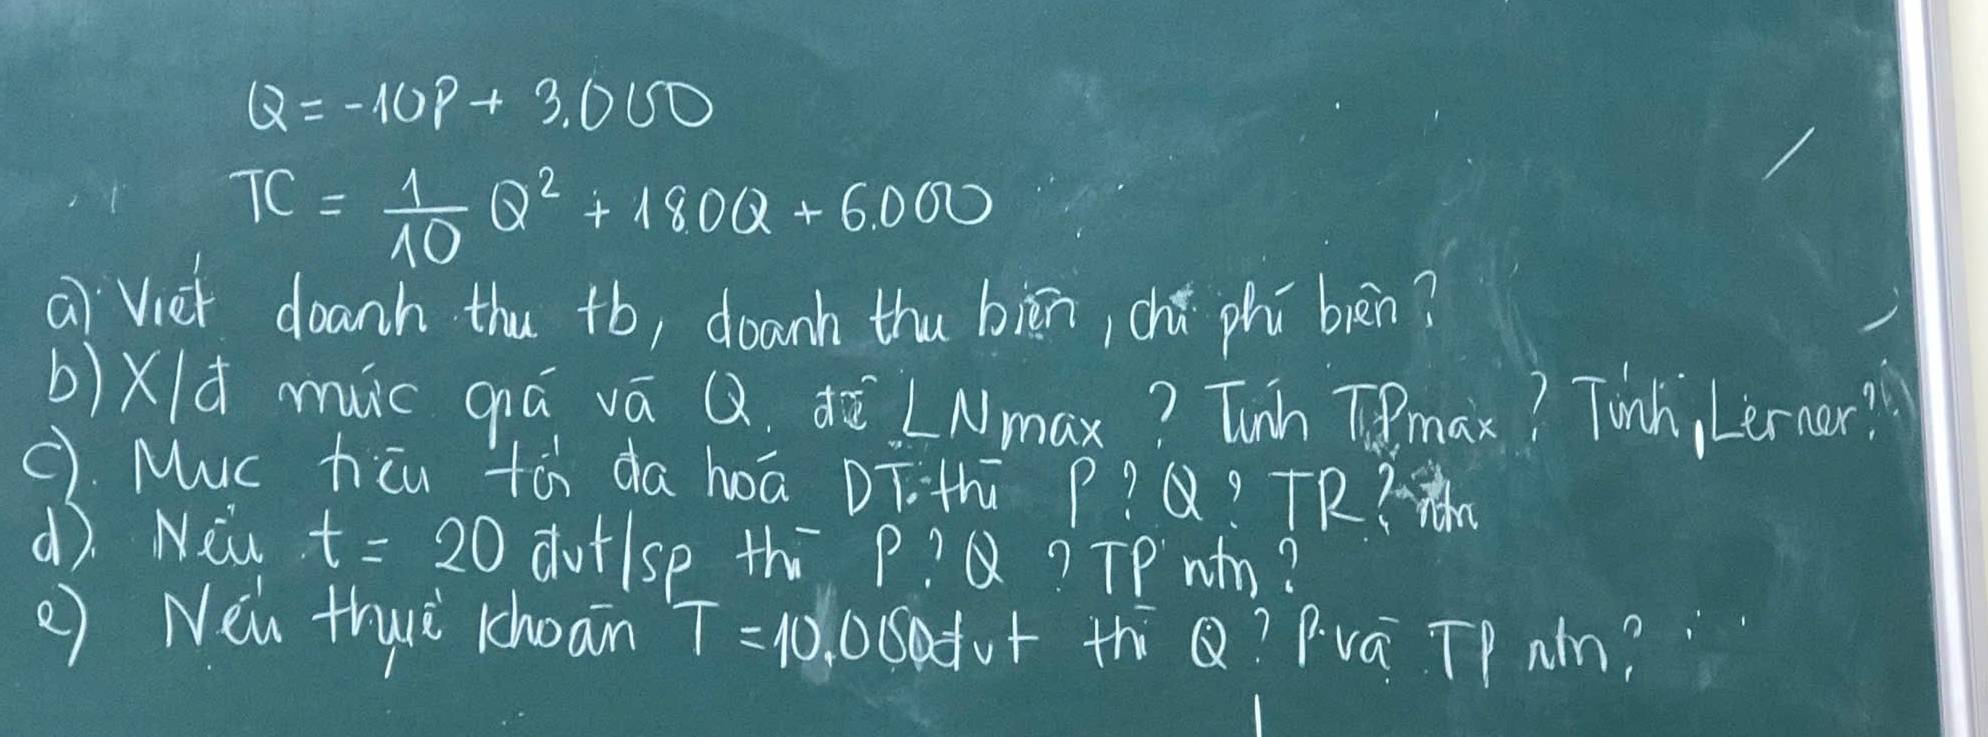 Q = -10P + 3.000
TC = 1/10 Q² + 180Q + 6.000
a) Viết doanh thu tb, doanh thu biên, chi phí biên?
b) X/đ mức giá và Q. để LNmax ? Tính TPmax ? Tính Lerner?
c). Mục tiêu tối đa hoá DT thì P? Q? TR? ntn
d). Nếu t = 20 đvt/sp thì P? Q? TP ntn?
e) Nếu thuế khoán T = 10.000đvt thì Q? P và TP ntn?